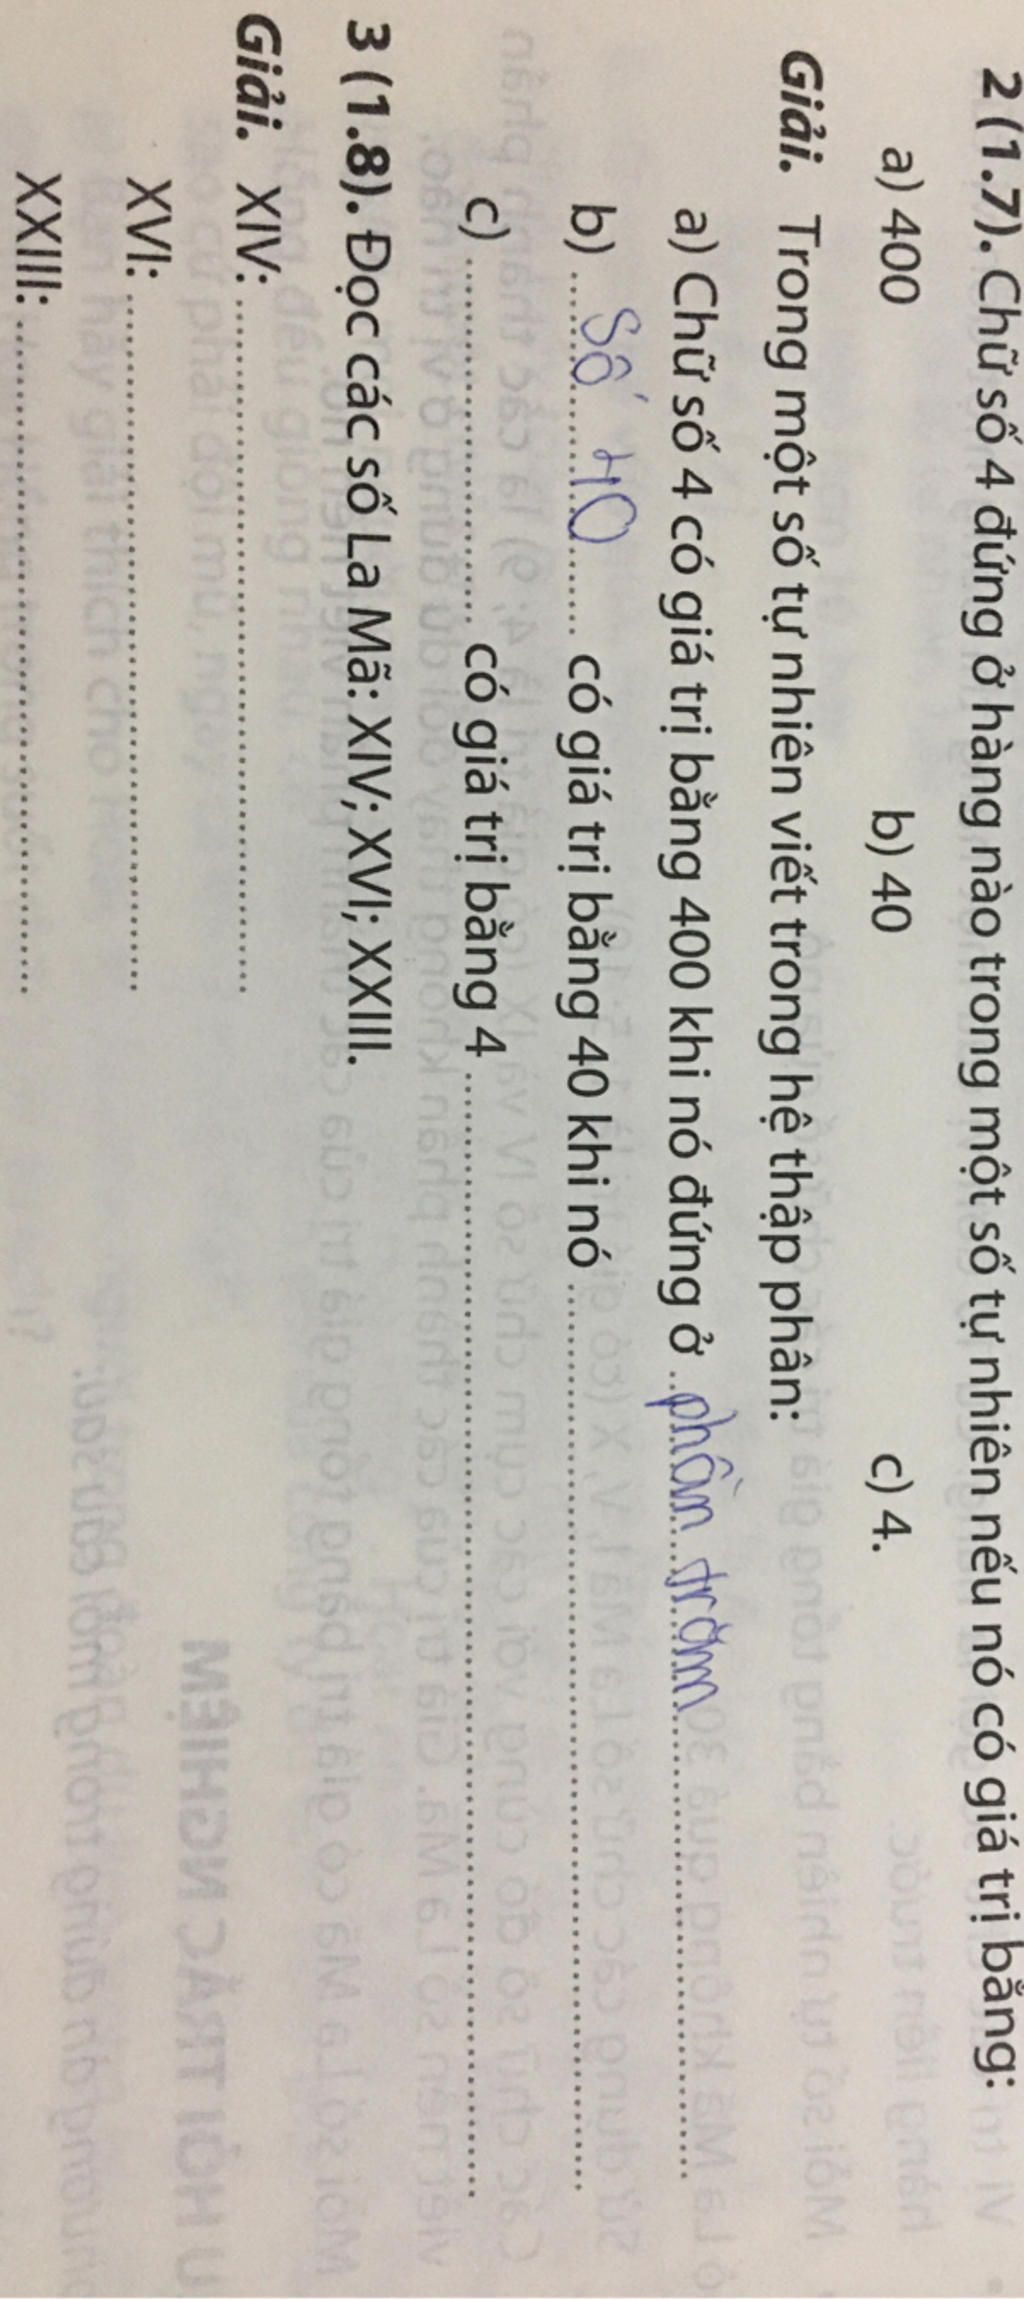 2 (1.7). Chữ số 4 đứng ở hàng nào trong một số tự nhiên nếu nó có giá trị bằng:
a) 400 b) 40 c) 4.
Giải. Trong một số tự nhiên viết trong hệ thập phân:
a) Chữ số 4 có giá trị bằng 400 khi nó đứng ở ..phần trăm..............................
b) ....Số 40........ có giá trị bằng 40 khi nó ............................................................
c) .............................. có giá trị bằng 4 ............................................................
3 (1.8). Đọc các số La Mã: XIV; XVI; XXIII.
Giải. XIV: ............................................................
XVI: ............................................................
XXIII: ............................................................